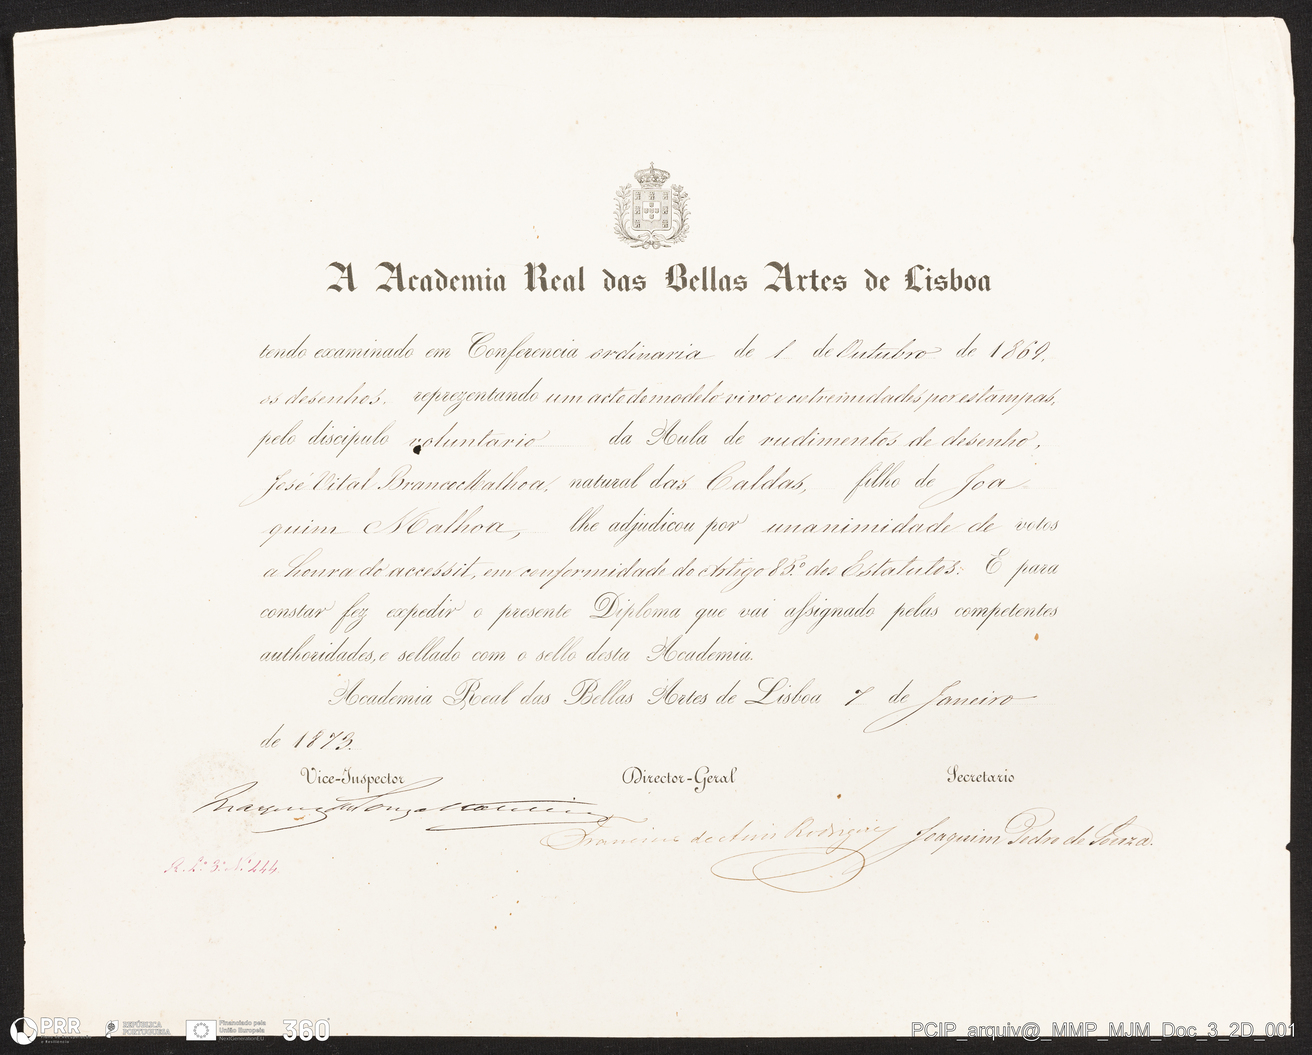 A Academia Real das Bellas Artes de Lisboa
tendo examinado em Conferencia ordinaria de 1 de Outubro de 1869,
os desenhos, reprezentando um acto do modelo vivo e extremidades por estampas,
pelo discipulo voluntario da Aula de rudimentos de desenho,
José Vital Branco Malhoa, natural das Caldas, filho de Joa-
quim Malhoa, lhe adjudicou por unanimidade de votos
a honra do accessit, em conformidade do Artigo 85.º dos Estatutos: E para
constar fez expedir o presente Diploma que vai assignado pelas competentes
authoridades, e sellado com o sello desta Academia.
Academia Real das Bellas Artes de Lisboa 7 de Janeiro
de 1873.
Vice-Inspector Director-Geral Secretario
Francisco de Assis Rodrigues Joaquim Pedro de Souza.
R. L.º 3.º N.º 444
PRR
REPÚBLICA
PORTUGUESA
Financiado pela
União Europeia
NextGenerationEU
360
PCIP_arquiv@_MMP_MJM_Doc_3_2D_001